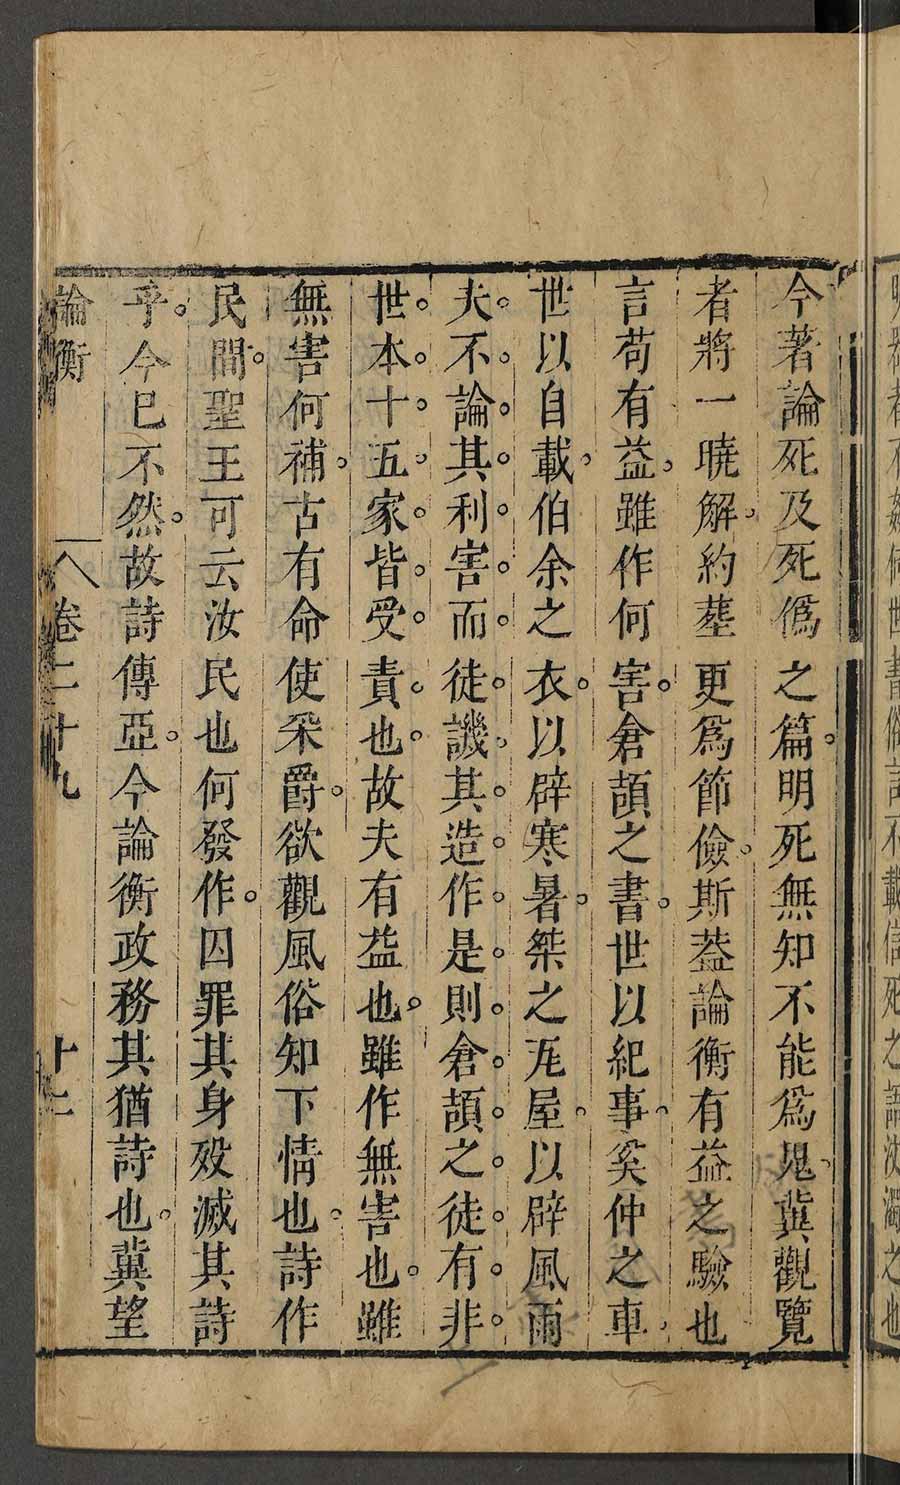 今著論死及死僞之篇明死無知不能爲鬼冀觀覽
者將一曉解約葬更爲節儉斯葢論衡有益之驗也
言苟有益雖作何害倉頡之書世以紀事奚仲之車
世以自載伯余之衣以辟寒暑桀之瓦屋以辟風雨
夫不論其利害而徒譏其造作是則倉頡之徒有非
世本十五家皆受責也故夫有益也雖作無害也雖
無害何補古有命使采爵欲觀風俗知下情也詩作
民間聖王可云汝民也何發作囚罪其身歿滅其詩
乎今已不然故詩傳亞今論衡政務其猶詩也冀望
論衡 卷二十九 十二